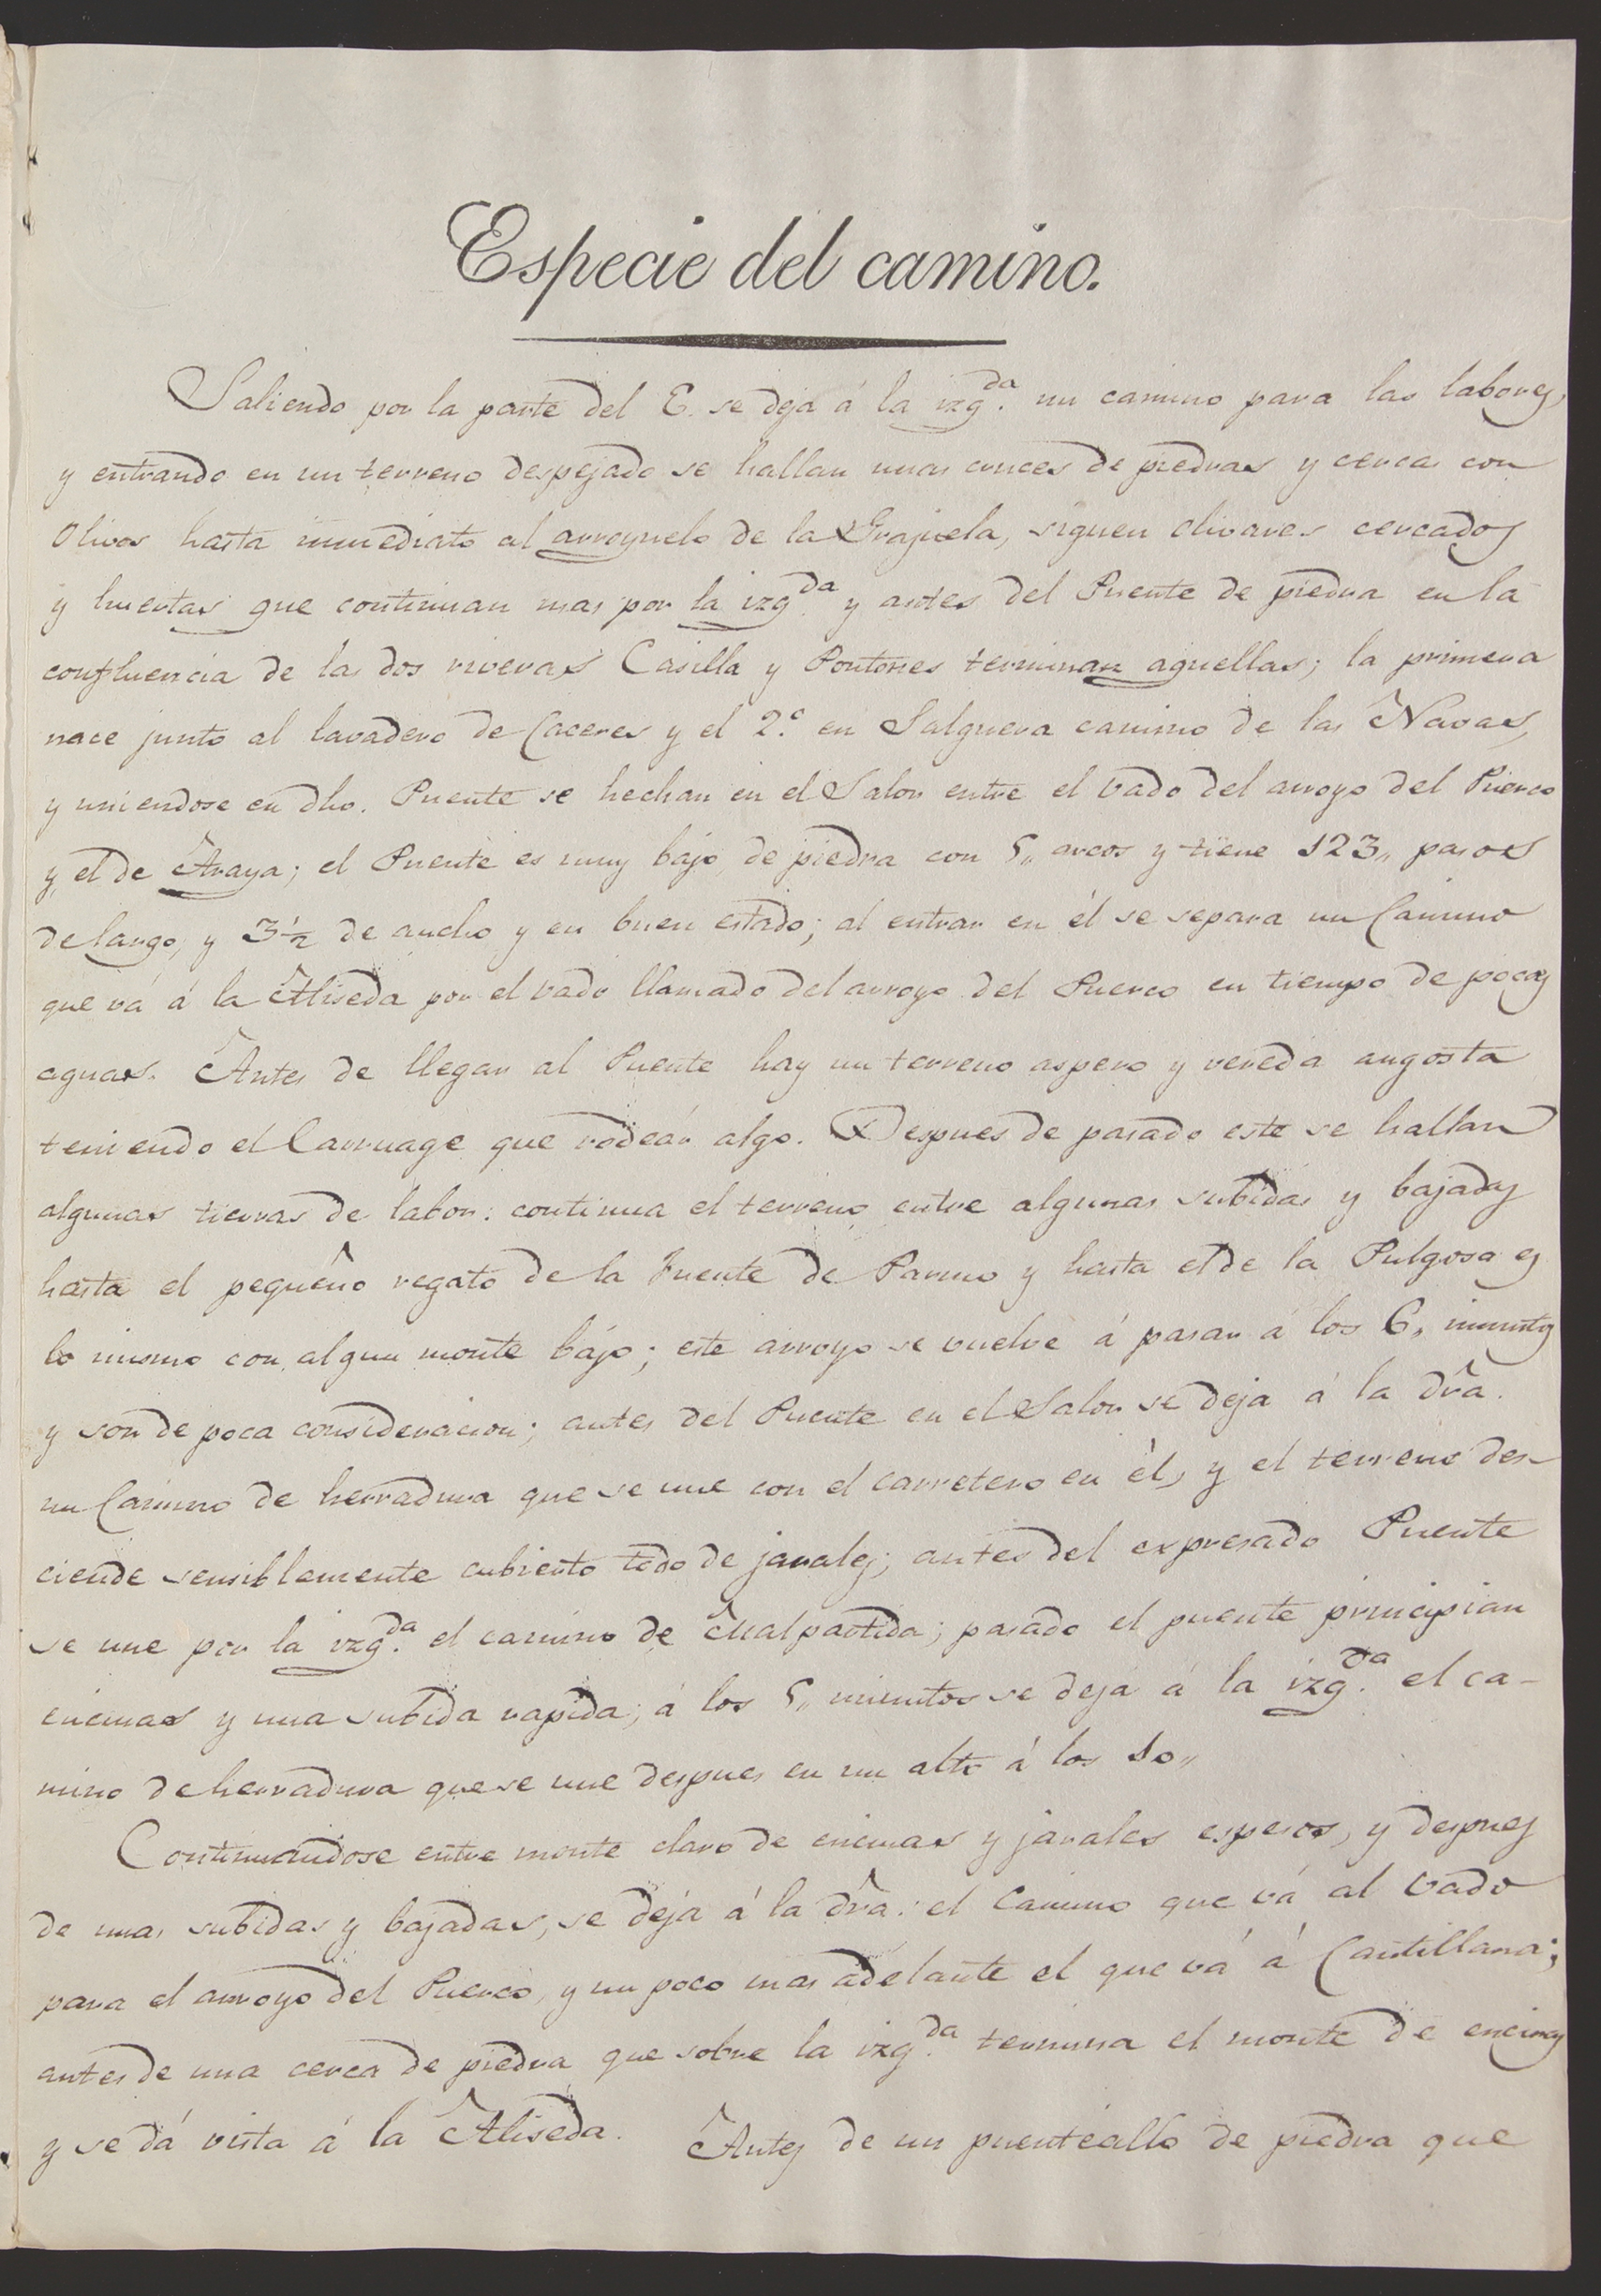 Especie del camino.
Saliendo por la parte del E. se deja á la izq.da un camino para las labores,
y entrando en un terreno despejado se hallan unas cruces de piedras y cercas con
Olivos hasta inmediato al arroyuelo de la Grajuela, siguen olivares cercados
y huertas que continuan mas por la izq.da y antes del Puente de piedra en la
confluencia de las dos riveras Casilla y Pontones terminan aquellas; la primera
nace junto al lavadero de Caceres y el 2.º en Salguera camino de las Navas,
y uniendose en dho. Puente se hechan en el Salor entre el vado del arroyo del Puerco
y el de Araya; el Puente es muy bajo de piedra con 5,, arcos y tiene 123,, pasos
de largo, y 3½ de ancho y en buen estado; al entrar en él se separa un Camino
que vá á la Aliseda por el vado llamado del arroyo del Puerco en tiempo de pocas
aguas. Antes de llegar al Puente hay un terreno aspero y vereda angosta
teniendo el Carruage que rodeár algo. Despues de pasado este se hallan
algunas tierras de labor: continua el terreno entre algunas subidas y bajadas
hasta el pequeño regato de la Fuente de Parmo y hasta el de la Pulgosa es
lo mismo con algun monte bájo; este arroyo se vuelve á pasar á los 6,, minutos
y son de poca consideracion; antes del Puente en el Salor se deja á la dra.
un Camino de herradura que se une con el carretero en él, y el terreno des-
ciende sensiblemente cubierto todo de jarales; antes del expresado Puente
se une por la izq.da el camino de Malpartida; pasado el puente principian
encinas y una subida rapida; á los 5,, minutos se deja á la izq.da el ca-
mino de herradura que se une despues en un alto á los 10,,
Continuandose entre monte claro de encinas y jarales espesos, y despues
de unas subidas y bajadas, se deja á la dra. el Camino que vá al vado
para el arroyo del Puerco, y un poco mas adelante el que vá á Cantillana;
antes de una cerca de piedra que sobre la izq.da termina el monte de encinas
y se dá vista á la Aliseda. Antes de un puentecillo de piedra que